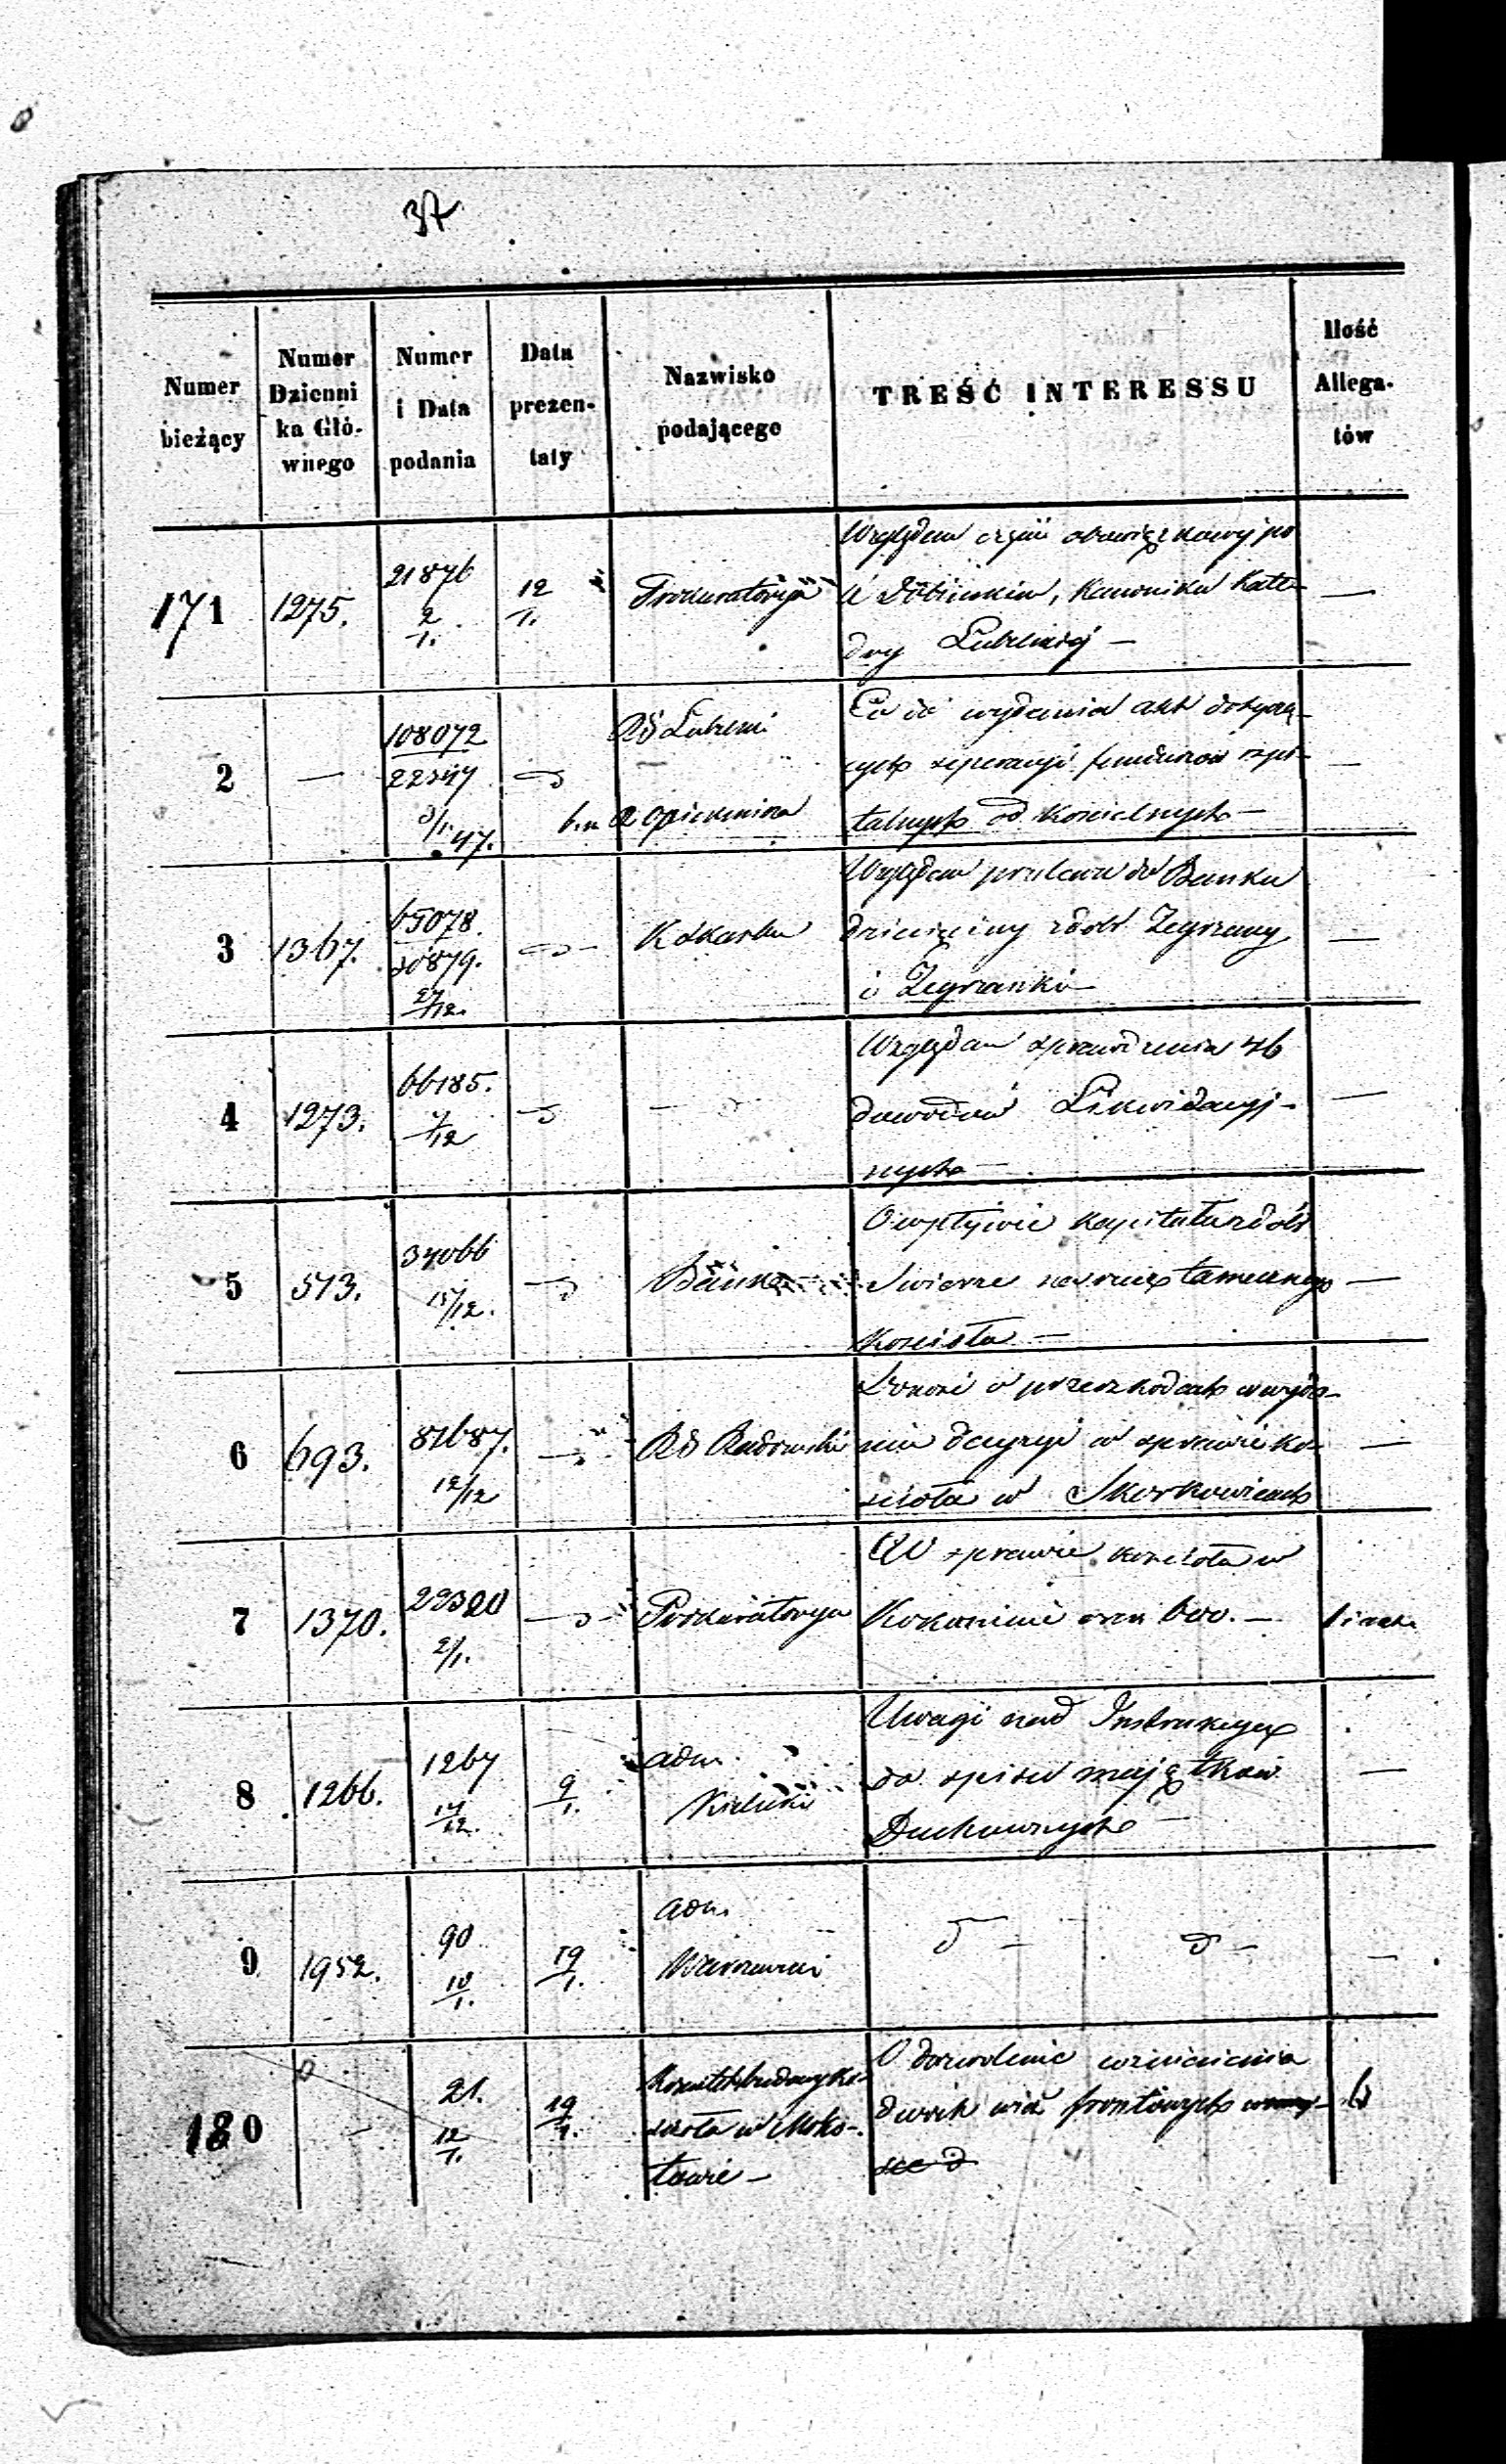 37
Numer bieżący
Numer Dzienni ka Głó- wnego
Numer i Data podania
Data prezen- taty
Nazwisko podającego
TREŚĆ INTERESSU
Ilość Allega- tów
171 1275. 21876 2/1. 12/1. Prokuratorya
Względem części obowiązkowej po
Kanonika Kate-
dry Lubelskiej —
—
2 — 108072 22347 3/1 47. —
RG Lubelski
b. n Opiekuńcza
Co do wydania akt dotyczą-
cych separacyi funduszów szpi-
talnych od kościelnych —
—
3 1367. 65078. 27/12. —
Względem przelewu do Banku
dziesięciny z dóbr Zegrzany
i Zegrzanki —
—
4 1273. 66185. /12 —
Względem sprawdzenia 46
dowodów Likwidacyj-
nych —
—
5 573. 34066 15/12. — Bank
O wpływie kapitału z dóbr
Swierze na rzecz tamecznego
kościoła —
—
6 693. 81687. 12/12 — RG Radomski
Donosi o przeszkodach w wyda-
niu decyzyi w sprawie ko-
ścioła w Skorkowicach
—
7 1370. 22320 2/1. — Prokuratorya
W sprawie kościoła w
600. —
8 1266. 1267 /12. 9/1.
adm.
Kielecki
Uwagi nad Instrukcyą
do spisu majątków
Duchownych —
—
9 1952. 90 10/1. 19/1.
adm.
Warszawski
d — d —
—
180 — 21. 12/1. 19/1.
Komitet budowy ko-
ścioła w Moko-
towie —
O dozwolenie wzniesienia
dwóch wież frontowych
6